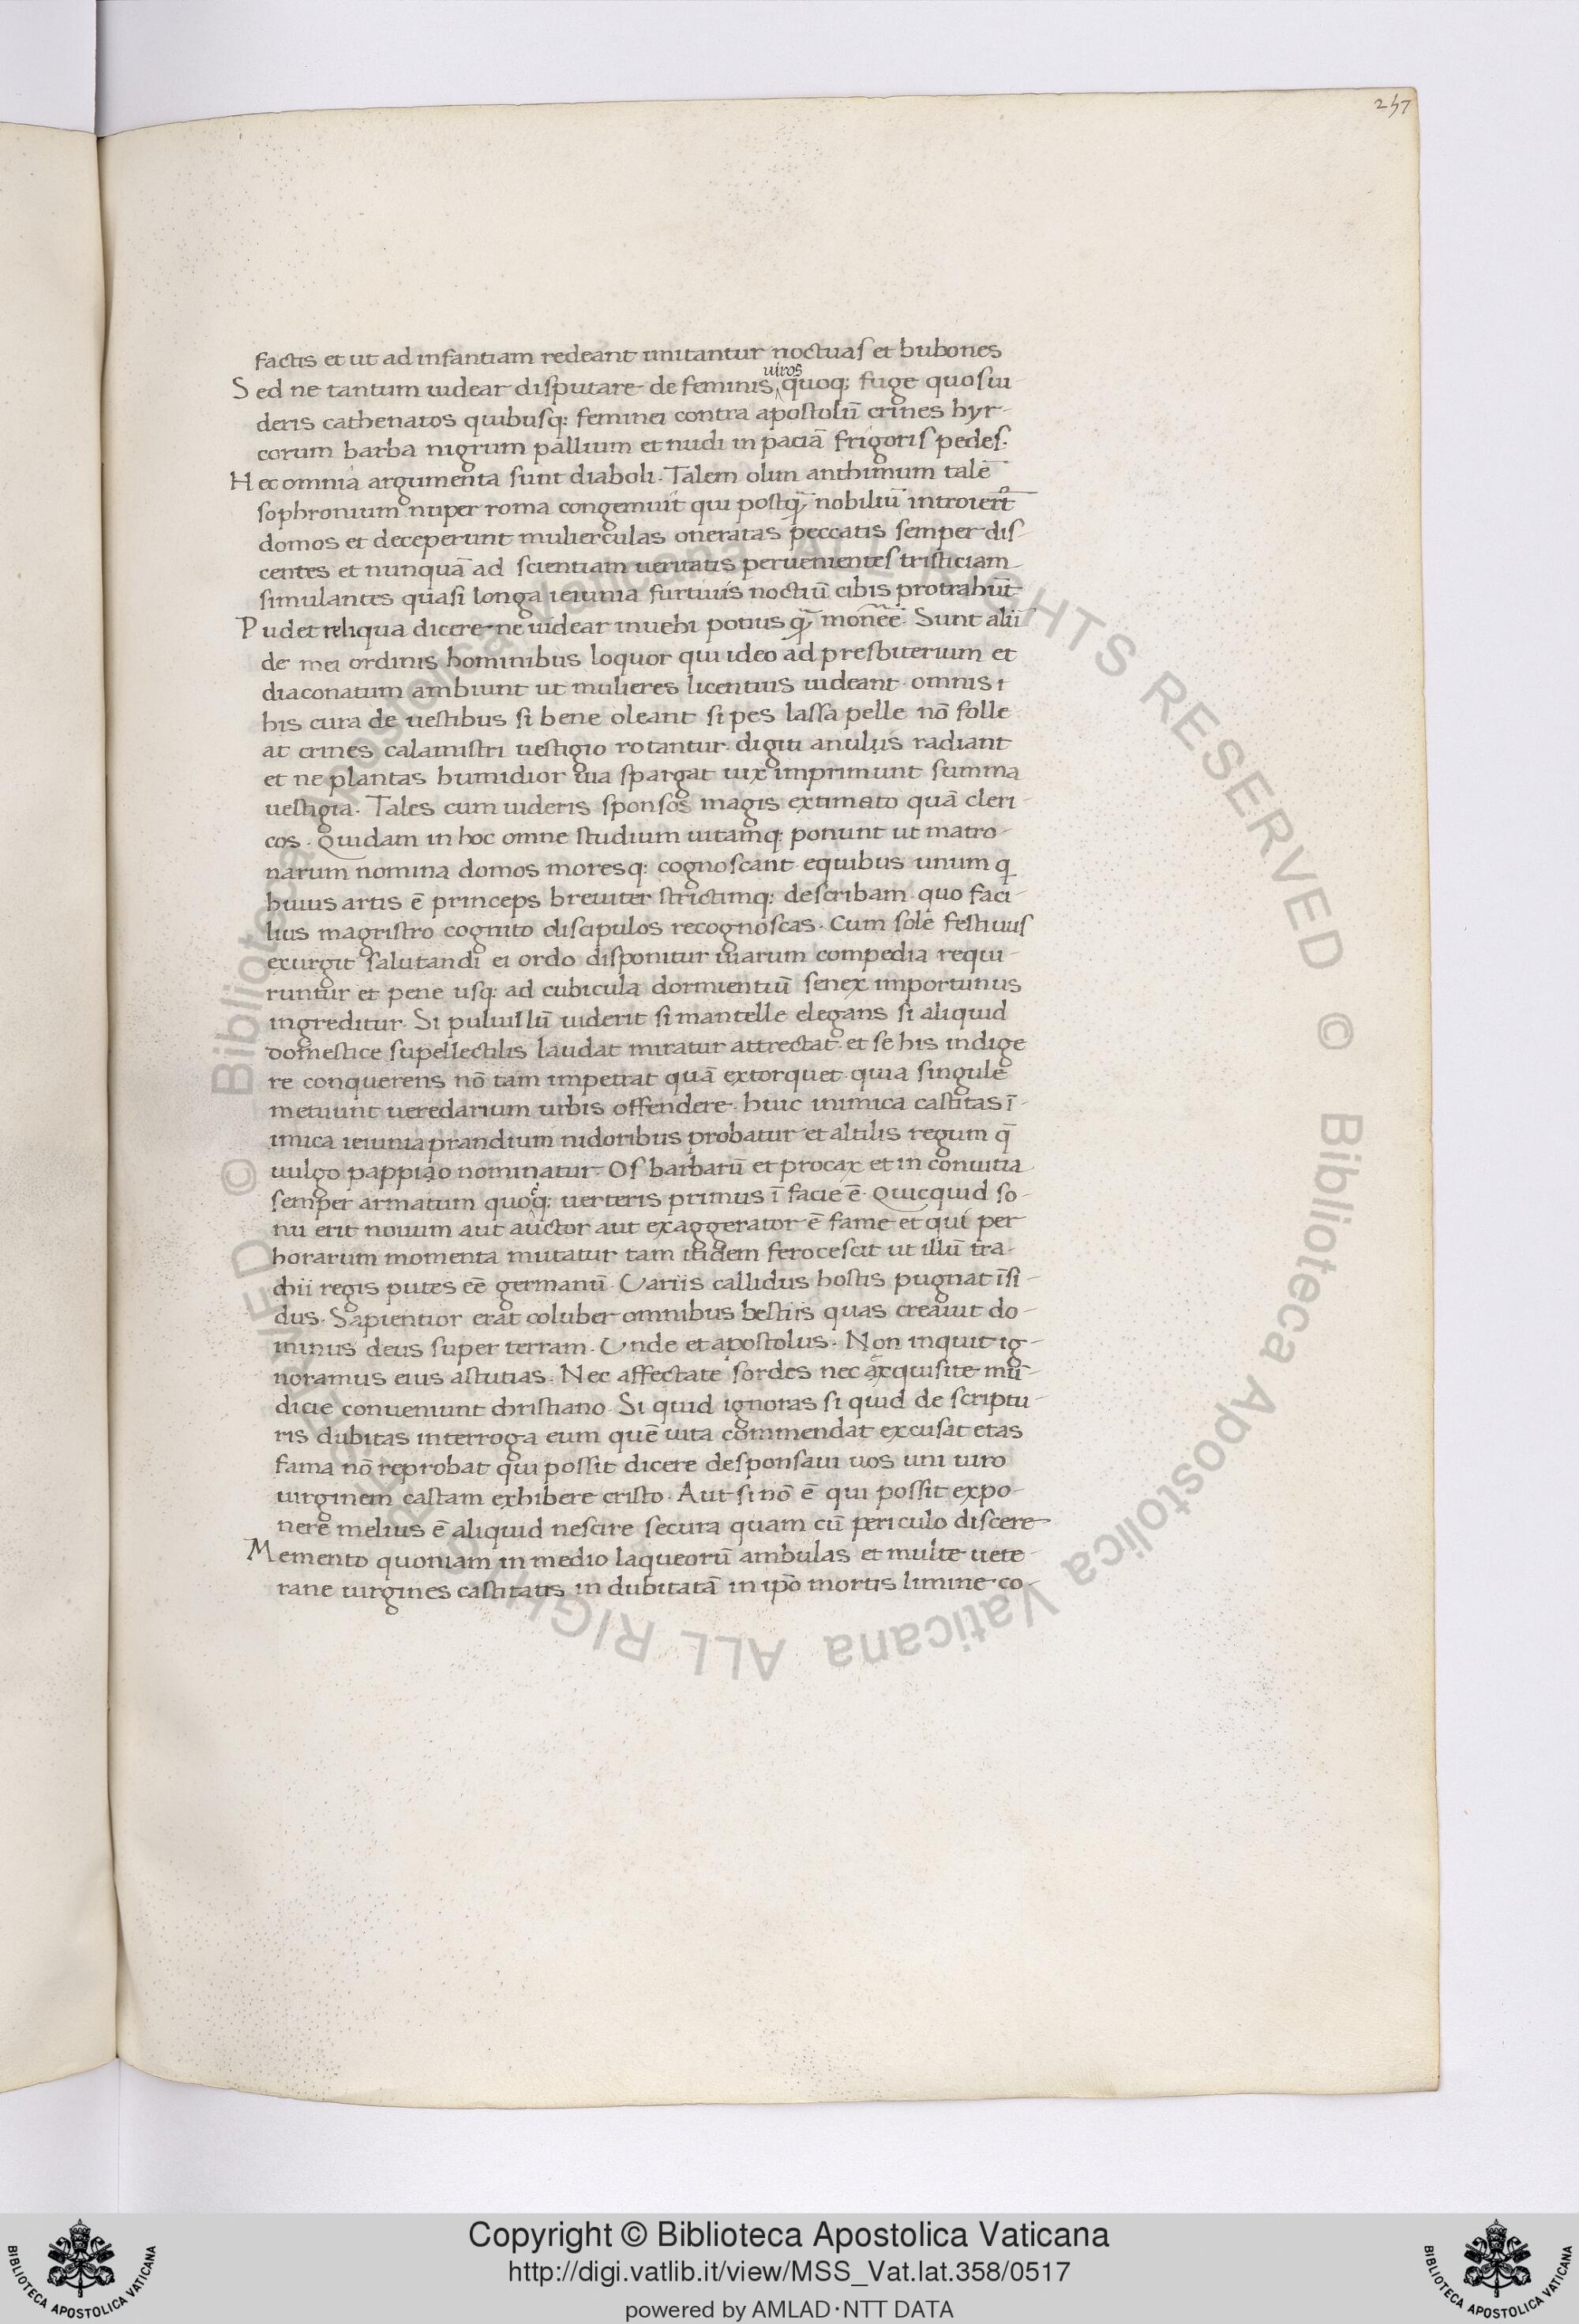 257
factis et ut ad infantiam redeant imitantur noctuas et bubones
Sed ne tantum uidear disputare de feminis uiros quoq; fuge quos ui-
deris cathenatos quibusq; feminei contra apostolū crines hyr-
corum barba nigrum pallium et nudi in paciā frigoris pedes.
Hec omnia argumenta sunt diaboli. Talem olim anthimum talē
sophronium nuper roma congemuit qui postq̄ nobiliū introierr̄t
domos et deceperunt mulierculas oneratas peccatis semper dis-
centes et nunquā ad scientiam ueritatis peruenientes tristiciam
simulantes quasi longa ieiunia furtiuis noctiū cibis protrahūt
Pudet reliqua dicere ne uidear inuehi potius q̄ monēe. Sunt alii
de mei ordinis hominibus loquor qui ideo ad presbiterium et
diaconatum ambiunt ut mulieres licentius uideant. omnis i
his cura de uestibus si bene oleant si pes lassa pelle nō folle
at crines calamistri uestigio rotantur. digiti anulus radiant
et ne plantas humidior uia spargat uix imprimunt summa
uestigia. Tales cum uideris sponsos magis extimato quā cleri-
cos. Quidam in hoc omne studium uitamq; ponunt ut matro-
narum nomina domos moresq; cognoscant equibus unum q
huius artis ē princeps breuiter strictimq; describam quo faci-
lius magistro cognito discipulos recognoscas. Cum sole festiuus
exurgit salutandi ei ordo disponitur uiarum compedia requi-
runtur et pene usq; ad cubicula dormientiū senex importunus
ingreditur. Si puluillū uiderit si mantelle elegans si aliquid
domestice supellectilis laudat miratur attrectat et se his indige
re conquerens nō tam impetrat quā extorquet quia singule
metuunt ueredarium urbis offendere. huic inimica castitas ī-
imica ieiunia prandium nidoribus probatur et altilis regum q̄
uulgo pappiao nominatur. Os barbarū et procax et in conuitia
semper armatum quoq; uerteris primus ī facie ē. Quicquid so-
nu erit nouum aut auctor aut exaggerator ē fame et qui per
horarum momenta mutatur tam itidem ferocescit ut illū tra-
chii regis putes eē germanū. Variis callidus hostis pugnat īsi-
dus. Sapientior erat coluber omnibus bestiis quas creauit do-
minus deus super terram. Unde et apostolus. Non inquit ig-
noramus eius astutias. Nec affectate sordes nec exquisite mū-
dicie conueniunt christiano. Si quid ignoras si quid de scriptu-
ris dubitas interroga eum quē uita commendat excusat etas
fama nō reprobat qui possit dicere desponsaui uos uni uiro
uirginem castam exhibere cristo. Aut si nō ē qui possit expo-
nere melius ē aliquid nescire secura quam cū periculo discere
Memento quoniam in medio laqueorū ambulas et multe uete-
rane uirgines castitatis in dubitatā in ipō mortis limine co-
© Biblioteca Apostolica Vaticana ALL RIGHTS RESERVED © Biblioteca Apostolica Vaticana ALL RIGHTS RESERVED
Copyright © Biblioteca Apostolica Vaticana
http://digi.vatlib.it/view/MSS_Vat.lat.358/0517
powered by AMLAD·NTT DATA
BIBLIOTECA APOSTOLICA VATICANA
BIBLIOTECA APOSTOLICA VATICANA